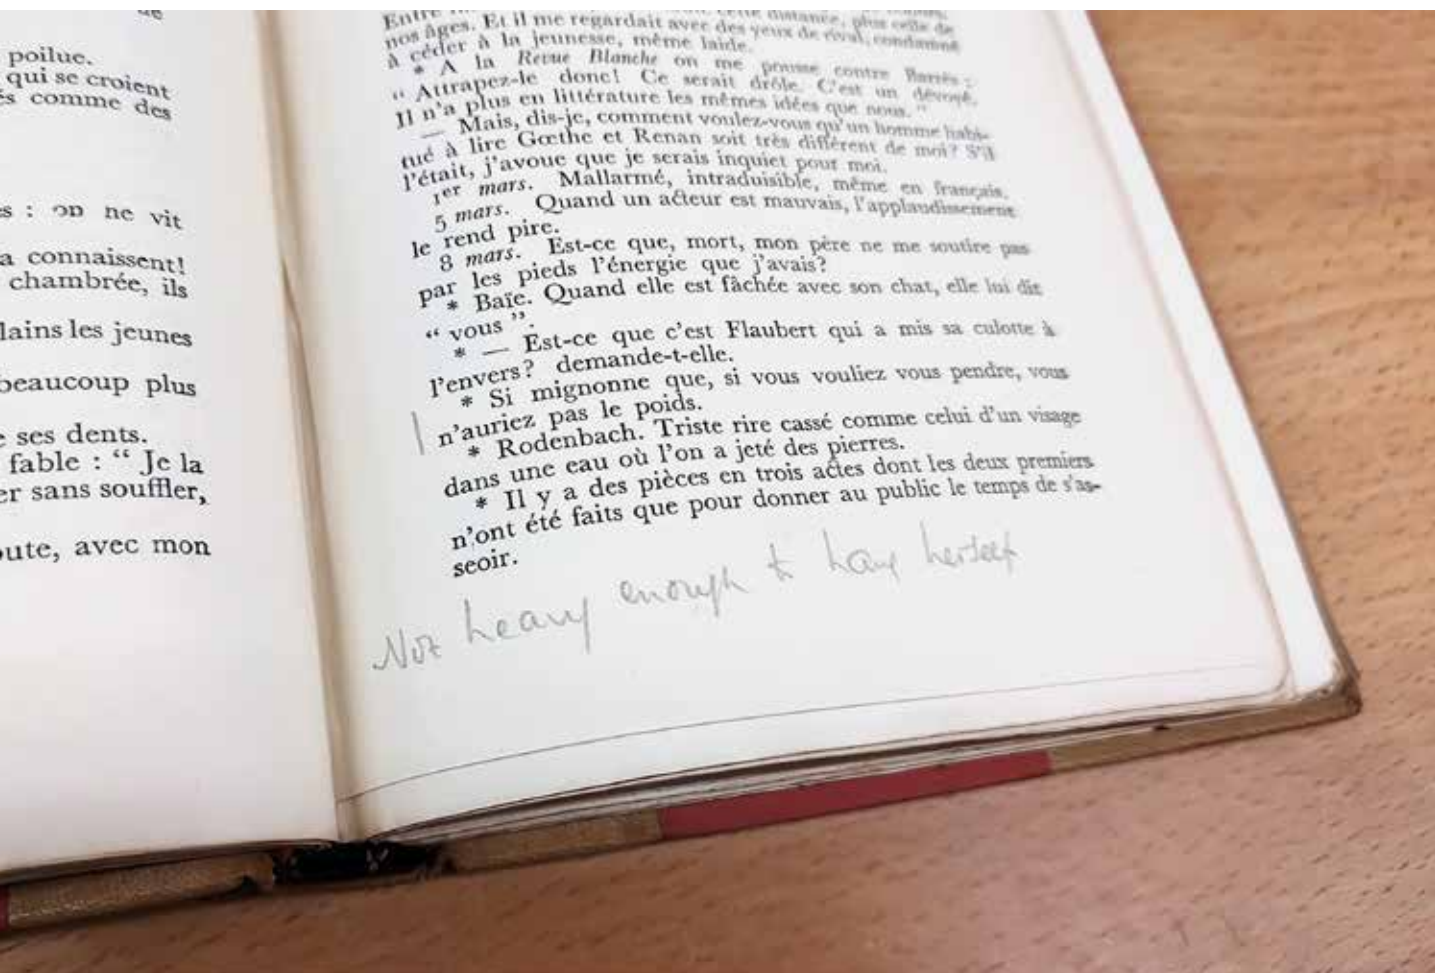 de
poilue.
qui se croient
s comme des
s : on ne vit
a connaissent!
chambrée, ils
lains les jeunes
beaucoup plus
e ses dents.
fable : “ Je la
er sans souffler,
oute, avec mon
Entre cette distance, plus celle de
nos âges. Et il me regardait avec des yeux de rival, condamné
à céder à la jeunesse, même laide.
* A la Revue Blanche on me pousse contre Barrès :
“ Attrapez-le donc! Ce serait drôle. C'est un dévoyé.
Il n'a plus en littérature les mêmes idées que nous. ”
— Mais, dis-je, comment voulez-vous qu'un homme habi-
tué à lire Gœthe et Renan soit très différent de moi? S'il
l'était, j'avoue que je serais inquiet pour moi.
1er mars. Mallarmé, intraduisible, même en français.
5 mars. Quand un acteur est mauvais, l'applaudissement
le rend pire.
8 mars. Est-ce que, mort, mon père ne me soutire pas
par les pieds l'énergie que j'avais?
* Baïe. Quand elle est fâchée avec son chat, elle lui dit
“ vous ”.
* — Est-ce que c'est Flaubert qui a mis sa culotte à
l'envers? demande-t-elle.
* Si mignonne que, si vous vouliez vous pendre, vous
n'auriez pas le poids.
* Rodenbach. Triste rire cassé comme celui d'un visage
dans une eau où l'on a jeté des pierres.
* Il y a des pièces en trois actes dont les deux premiers
n'ont été faits que pour donner au public le temps de s'as-
seoir.
Not heavy enough to hang herself